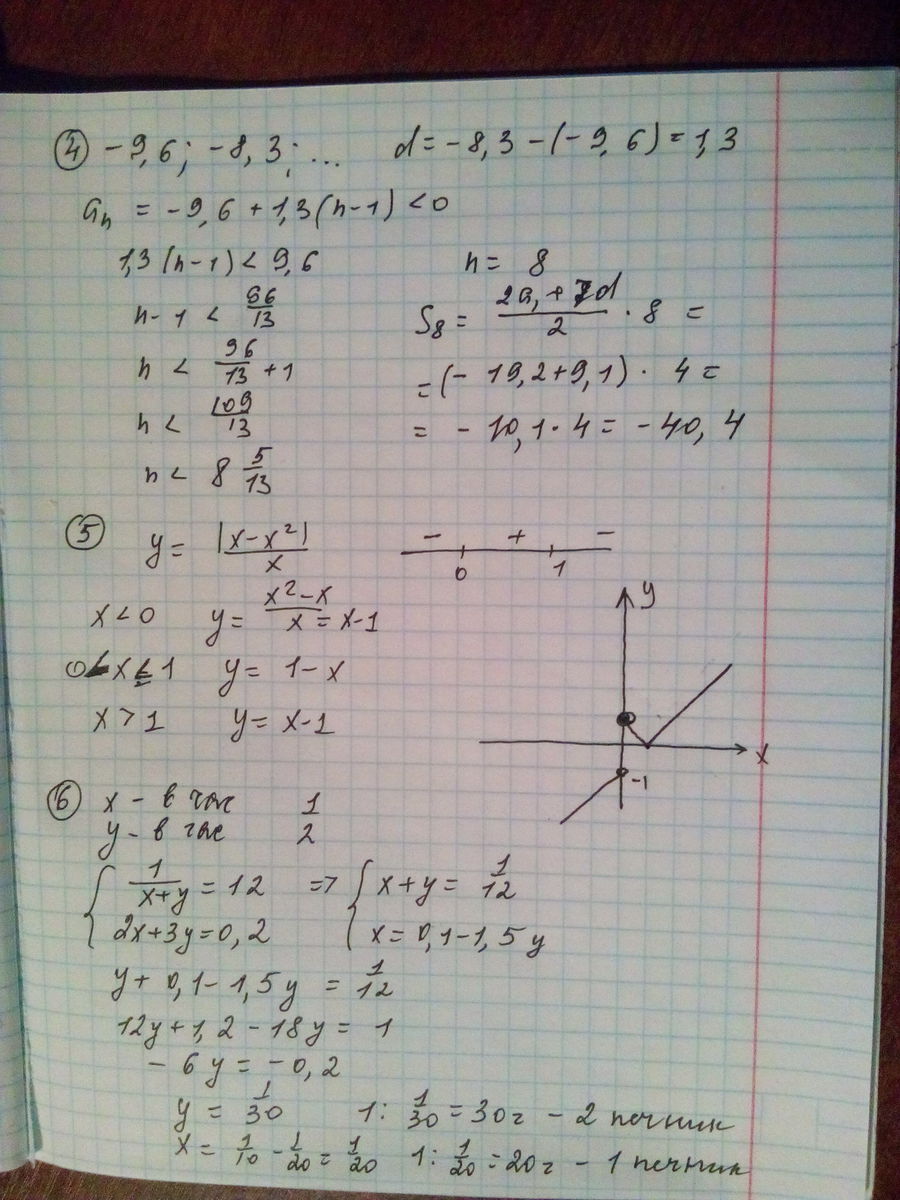 ④ -9,6; -8,3; ... d = -8,3 - (-9,6) = 1,3
aₙ = -9,6 + 1,3(n-1) < 0
1,3(n-1) < 9,6 n = 8
n-1 < 96/13 S₈ = (2a₁+7d)/2 · 8 =
n < 96/13 + 1 = (-19,2+9,1) · 4 =
n < 109/13 = -10,1·4 = -40,4
n < 8 5/13
⑤ y = |x-x²|/x - + -
0 1
x<0 y = (x²-x)/x = x-1 y
0<x≤1 y = 1-x
x>1 y = x-1 x
-1
⑥ x - в час 1
y - в час 2
{ 1/(x+y) = 12 => { x+y = 1/12
2x+3y=0,2 x = 0,1-1,5y
y + 0,1 - 1,5y = 1/12
12y + 1,2 - 18y = 1
-6y = -0,2
y = 1/30 1: 1/30 = 30ч - 2 печник
x = 1/10 - 1/20 = 1/20 1: 1/20 = 20ч - 1 печник